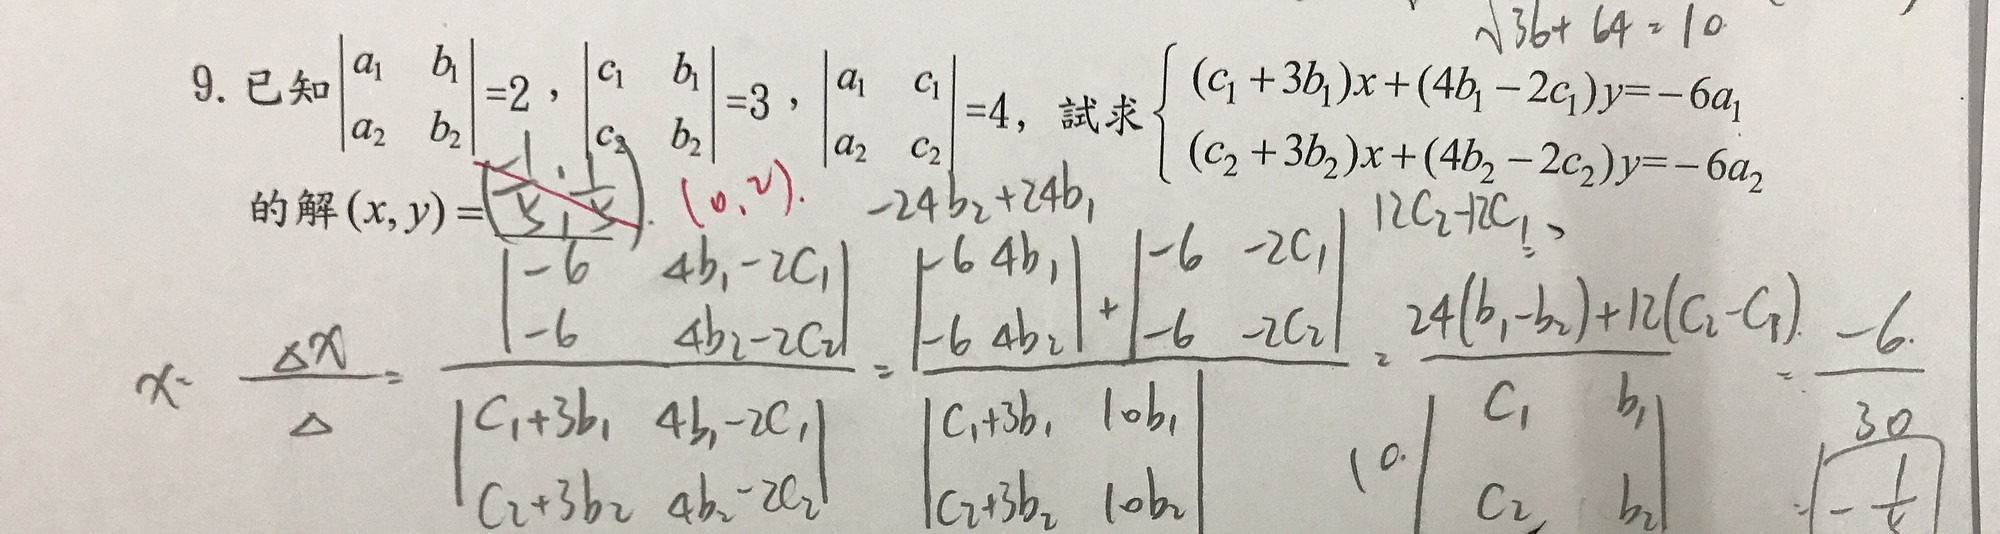 √36+64 = 10
9. 已知 |a₁ b₁; a₂ b₂| =2, |c₁ b₁; c₂ b₂| =3, |a₁ c₁; a₂ c₂| =4, 試求 { (c₁+3b₁)x+(4b₁-2c₁)y=-6a₁
(c₂+3b₂)x+(4b₂-2c₂)y=-6a₂
的解(x, y)= (0, 2). -24b₂+24b₁ 12C₂-12C₁
x = Δx/Δ = |-6 4b₁-2C₁; -6 4b₂-2C₂| / |C₁+3b₁ 4b₁-2C₁; C₂+3b₂ 4b₂-2C₂| = (|-6 4b₁; -6 4b₂| + |-6 -2C₁; -6 -2C₂|) / |C₁+3b₁ 10b₁; C₂+3b₂ 10b₂| = (24(b₁-b₂)+12(C₂-C₁)) / (10 |C₁ b₁; C₂ b₂|) = -6/30